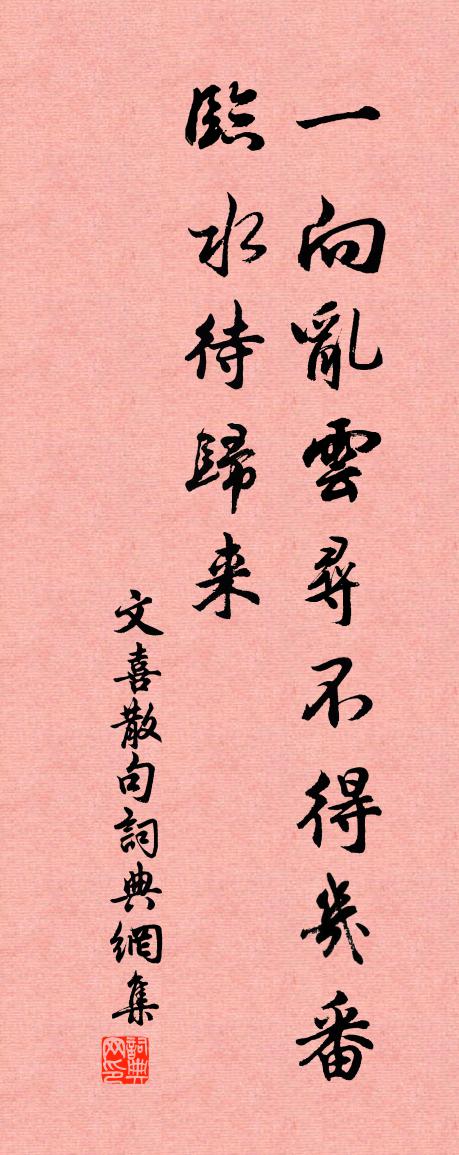 一向亂雲尋不得幾番
臨水待歸来
文喜散句詞典網集
詞典网印